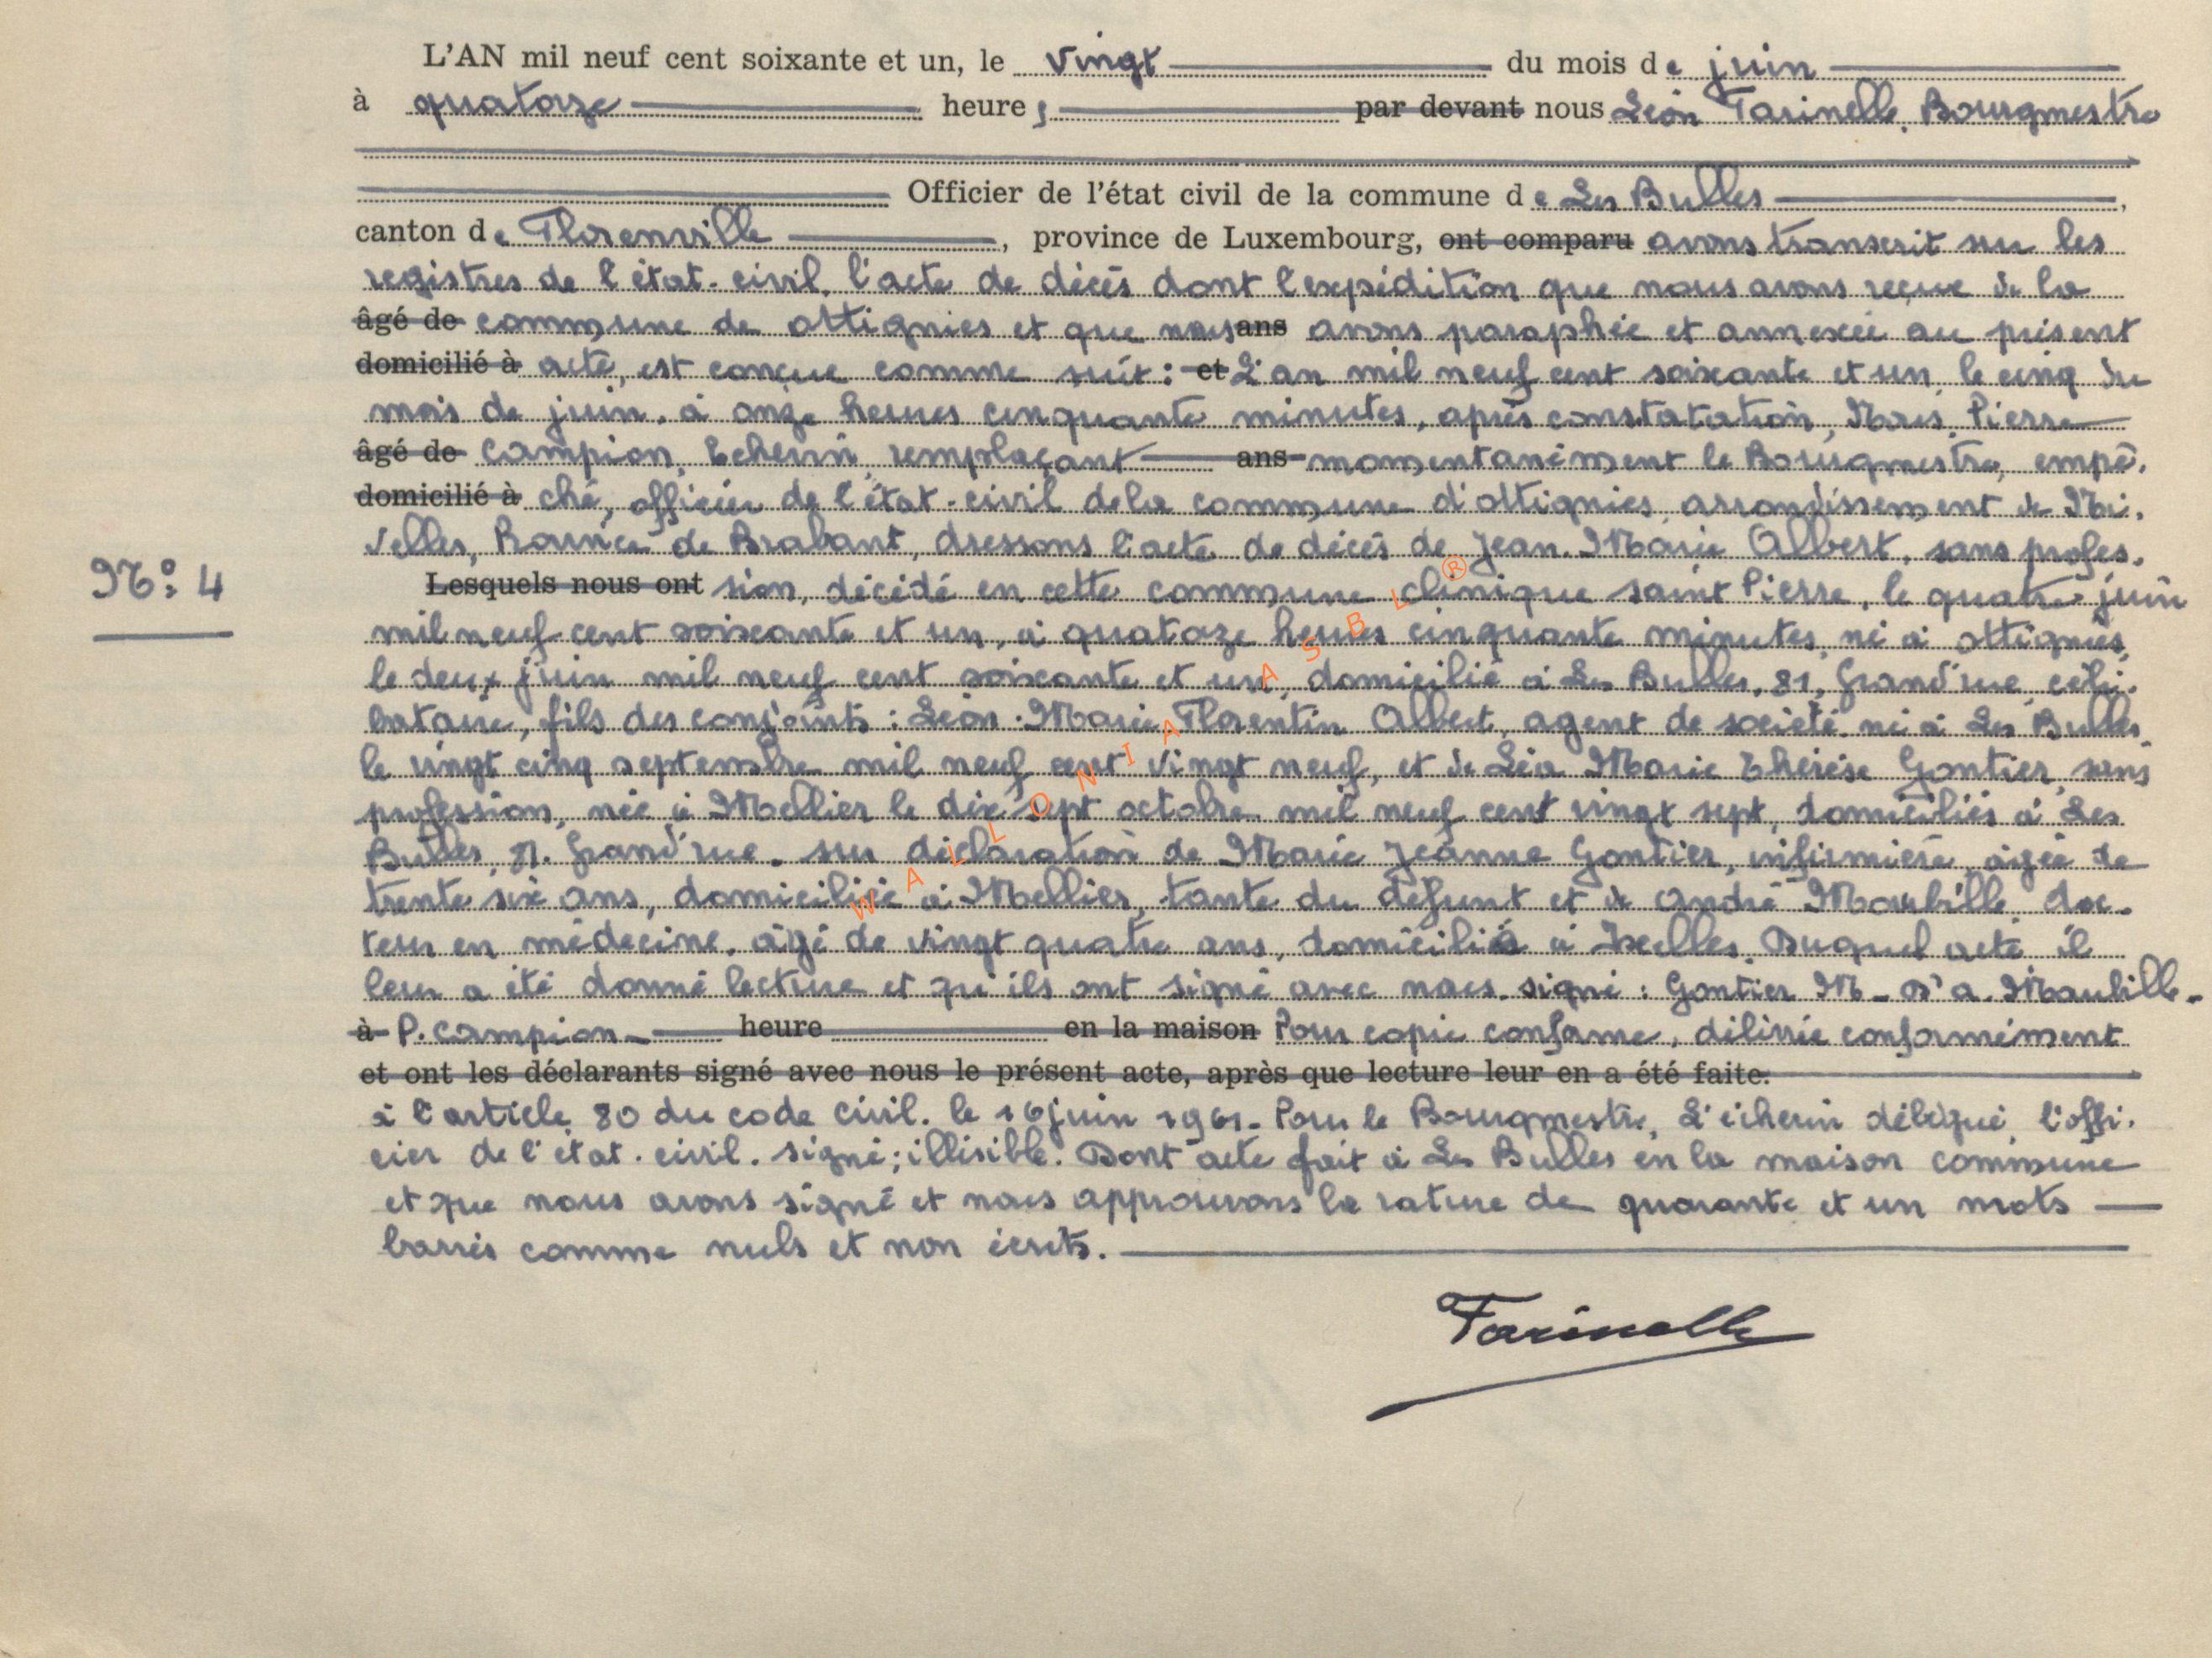 L'AN mil neuf cent soixante et un, le vingt du mois de juin
à quatoze heures par devant nous Léon Farinelle, Bourgmestre
Officier de l'état civil de la commune de Les Bulles,
canton de Florenville, province de Luxembourg, ont comparu avons transcrit sur les
registres de l'état-civil, l'acte de décès dont l'expédition que nous avons reçue de la
âgé de commune de Ottignies et que nous ans avons paraphée et annexée au présent
domicilié à acte, est concue comme suit : et L'an mil neuf cent soixante et un, le cinq du
mois de juin, à onze heures cinquante minutes, après constatation, Nous, Pierre
âgé de Campion, Echevin, remplaçant ans momentanément le Bourgmestre, empê-
domicilié à ché, officier de l'état-civil de la commune d'Ottignies, arrondissement de Ni-
velles, Province de Brabant, dressons l'acte de décès de Jean-Marie Albert, sans profes-
N°: 4
Lesquels nous ont sion, décédé en cette commune clinique saint Pierre, le quatre juin
mil neuf cent soixante et un, à quatoze heures cinquante minutes, né à Ottignies,
le deux juin mil neuf cent soixante et un, domicilié à Les Bulles, 81, Grand'rue, céli-
bataire, fils des conjoints : Léon-Marie Florentin Albert, agent de société né à Les Bulles
le vingt cinq septembre mil neuf cent vingt neuf, et de Léa Marie Thérèse Gontier, sans
profession, née à Mellier le dix sept octobre mil neuf cent vingt sept, domiciliés à Les
Bulles, 81, Grand'rue. sur déclaration de Marie Jeanne Gontier, infirmière, âgée de
trente six ans, domiciliée à Mellier, tante du défunt et de André Maubille, doc-
teur en médecine, âgé de vingt quatre ans, domicilié à Ixelles. Duquel acte il
leur a été donné lecture et qu'ils ont signé avec nous. signé : Gontier M- A. Maubille-
à P. Campion- heure en la maison Pour copie conforme, délivrée conformément
et ont les déclarants signé avec nous le présent acte, après que lecture leur en a été faite.
à l'article 80 du code civil. le 16 juin 1961. Pour le Bourgmestre, L'échevin délégué, l'offi-
cier de l'état-civil. signé; illisible. Dont acte fait à Les Bulles en la maison commune
et que nous avons signé et nous approuvons la rature de quarante et un mots
barrés comme nuls et non écrits.
Farinelle
WALLONIA ASBL ®